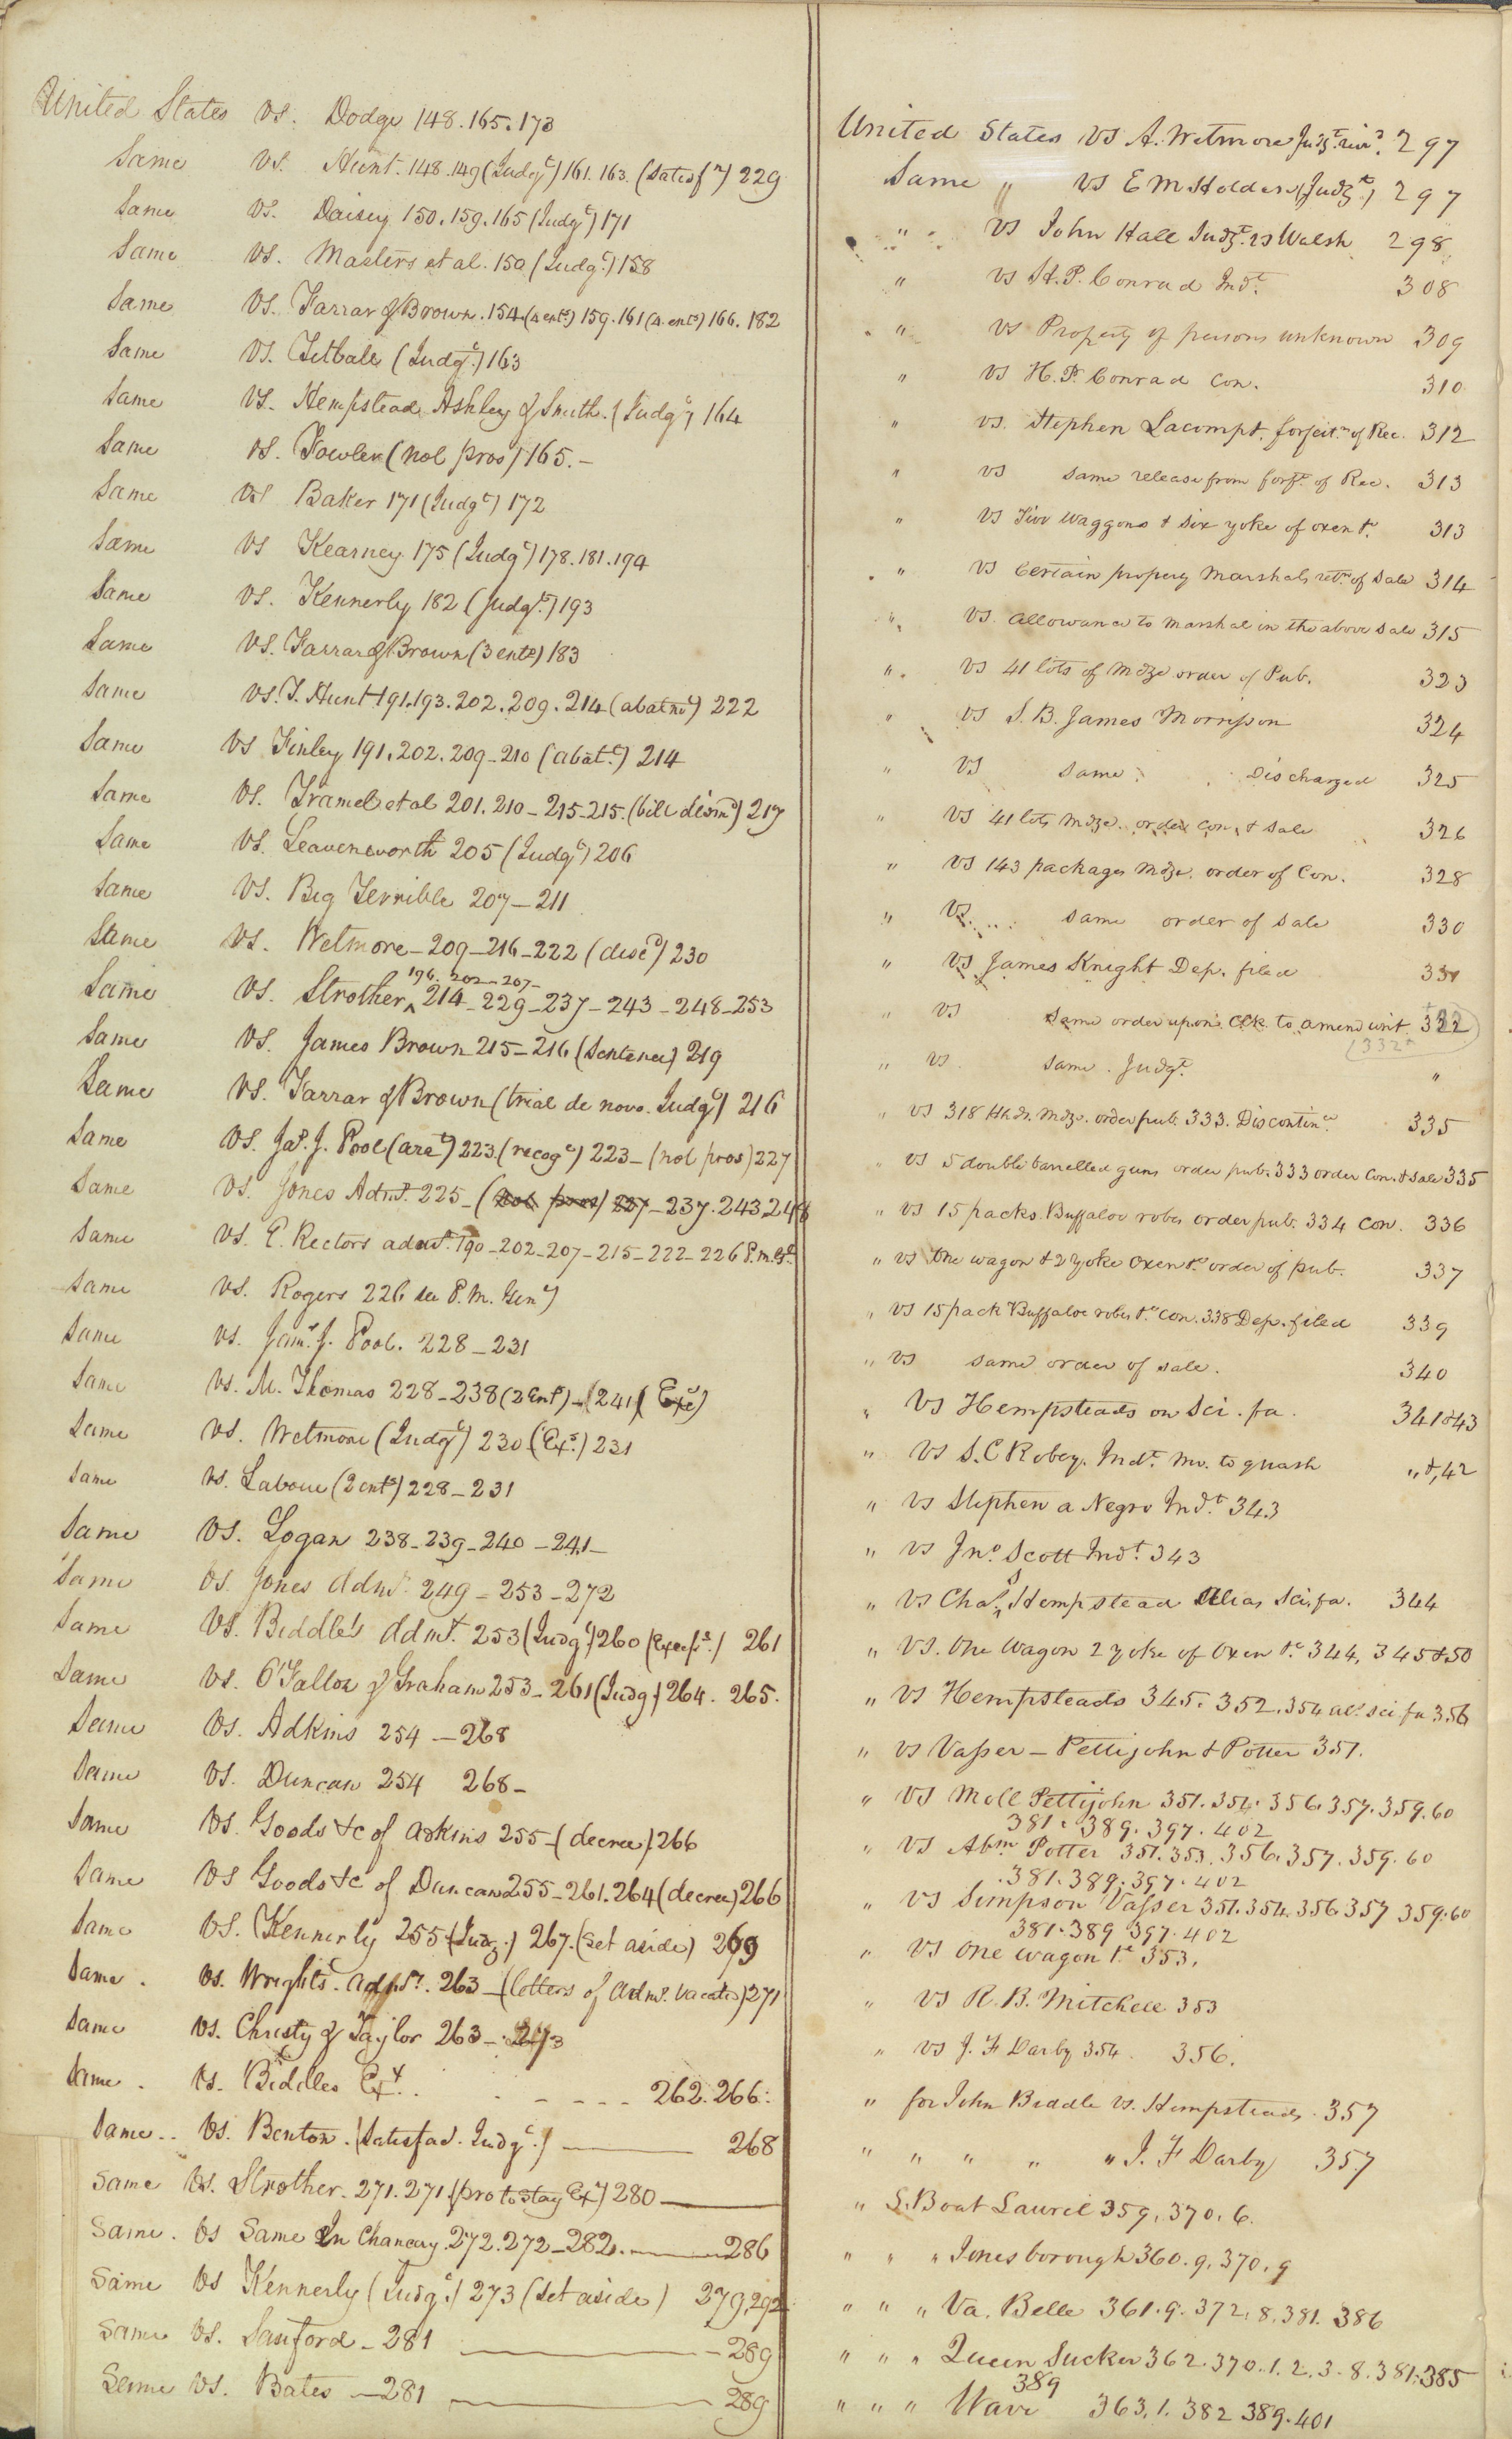 United States vs. Dodge 148.165.173
Same vs. Hunt. 148.149 (Judgt) 161.163. (Satisfn) 229
Same vs. Daisey 150.159.165 (Judgt) 171
Same vs. Masters et al. 150 (Judgt) 158
Same vs. Farrar & Brown. 154.(4 ents) 159.161 (4 ents) 166.182
Same vs. Tetbale (Judgt.) 163
Same vs. Hempstead, Ashley & Smith. (Judgt) 164
Same vs. Fowler (nol pros) 165.-
Same vs Baker 171 (Judgt) 172
Same vs Kearney 175 (Judgt) 178.181.194
Same vs. Kennerly 182 (Judgt.) 193
Same vs. Farrar & Brown (3 ents) 183
Same vs. T. Hunt 191.193.202.209.214 (abatmt) 222
Same vs Finley 191.202.209-210 (abatt.) 214
Same vs. Tramel et al 201.210-215-215.(bill dismd) 217
Same vs. Leavenworth 205 (Judgt) 206
Same vs. Big Terrible 207-211
Same vs. Wetmore-209-216-222 (discd) 230
Same vs. Strother ^ 196. 202-207- 214-229-237-243-248-253
Same vs. James Brown 215-216 (Sentence) 219
Same vs. Farrar & Brown (trial de novo. Judgt) 216
Same vs. Jas. J. Pool (aret) 223.(recogt) 223-(nol pros) 227
Same vs. Jones Admr. 225-(nol pros) 227-237.243 248
Same vs. E. Rectors admr. 190-202-207-215-222-226 P.M.Gl.
Same vs. Rogers 226 see P.M. Genl
Same vs. Jams. J. Pool. 228-231
Same vs. M. Thomas 228-238 (2 Ents)-(241 (Exn)
Same vs. Wetmore (Judgt) 230 (Exs.) 231
Same vs. Laboue (2 ents) 228-231
Same vs. Logan 238-239-240-241-
Same vs. Jones Admr. 249-253-272
Same vs. Biddle's Admr. 253 (Judgt) 260 (Excepts.) 261
Same vs. O'Fallon & Graham 253-261 (Judg.) 264. 265.
Same vs. Adkins 254-268
Same vs. Duncan 254 268-
Same vs. Goods &c of Adkins 255-(decree) 266
Same vs Goods &c of Duncan 255-261.264 (decree) 266
Same vs. Kennerly 255 (Judg.) 267.(Set aside) 269
Same. vs. Wrights. admr. 263-(letters of Admr. vacated) 271
Same vs. Christy & Taylor 263-273
Same. vs. Biddles Exr.. - - - - 262.266.
Same.. vs. Benton. (Satisfac. Judgt.) 268
Same vs. Strother. 271.271 (pro to stay Ex) 280
Same. vs Same In Chancery. 272.272-282. 286
Same vs Kennerly (Judgt.) 273 (Set aside) 279,292
Same vs. Sanford-281 289
Same vs. Bates-281 289
United States vs A. Wetmore Judgt. revd. 297
Same " vs E M Holdere (Judgt) 297
" vs John Hall Judgt. vs Walsh 298
" vs H. P. Conrad Indt. 308
" vs Property of persons unknown 309
" vs H. P. Conrad Con. 310
" vs. Stephen Lacompt. forfeitn. of Rec. 312
" vs same release from forft. of Rec. 313
" vs Two Waggons & Six yoke of oxen &c. 313
" vs Certain propery Marshals retn. of Sale 314
" vs. allowance to Marshal in the above Sale 315
" vs 41 lots of Mdze order of Pub. 323
" vs S. B. James Morrison 324
" vs Same Discharged 325
" vs 41 lots Mdze. order con. & Sale 326
" vs 143 packages Mdze. order of Con. 328
" vs. same order of Sale 330
" vs James Knight Dep. filed 331
" vs Same order upon Clk to amend writ. 322
(332
" vs same. Judgt. "
" vs 318 Hhds. Mdze. order pub. 333. Discontince. 335
" vs 5 double barrelled guns order pub. 333 order Con. & Sale 335
" vs 15 packs. Buffaloe robes order pub. 334 Con. 336
" vs One wagon & 2 yoke Oxen &c order of pub. 337
" vs 15 pack Buffaloe robes &c. Con. 338 Dep. filed 339
" vs same order of sale. 340
" vs Hempsteads on Sci. fa. 341 & 43
" vs S. C Robey. Indt. Mo. to quash " &,42
" vs Stephen a Negro Indt. 343
" vs Jno. Scott Indt. 343
" vs Chas. S Hempstead Alias Sci. fa. 344
" vs. One Wagon 2 yoke of Oxen &c. 344, 345 & 50
" vs Hempsteads 345. 352. 354 als. sci fa 356
" vs Vasser - Pettijohn & Potter 351.
" vs Moll Pettijohn 351.354.356.357.359.60
381.389.397.402
" vs Abm. Potter 351.353.356.357.359.60
.381.389.397.402
" vs Simpson Vasser 351.354.356.357 359.60
381.389 397.402
" vs One Wagon &c 353.
" vs R. B. Mitchell 353
" vs J. F Darby 354. 356.
" for John Beddle vs. Hempsteads. 357
" " " " " J. F Darby 357
" S. Boat Laurel 359, 370. 6.
" " " Jonesborough 360.9. 370. 9
" " " Va. Belle 361.9. 372. 8. 381. 386
" " " Queen Sucker 362.370.1.2.3.8.381.385
389
" " " Wave 363.1. 382 389.401